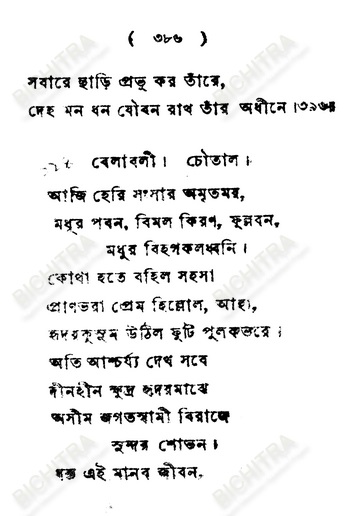 ( ৩৮৬ )
সবারে ছাড়ি প্রভু কর তাঁরে,
দেহ মন ধন যৌবন রাখ তাঁর অধীনে।
বেলাবলী। চৌতাল।
আজি হেরি সংসার অমৃতময়,
মধুর পবন, বিমল কিরণ, ফুল্লবন,
মধুর বিহগকলধ্বনি।
কোথা হতে বহিল সহসা
প্রাণভরা প্রেম হিল্লোল, আহা,
হৃদয়কুসুম উঠিল ফুটি পুলকভরে।
অতি আশ্চর্য্য দেখ সবে
দীনহীন ক্ষুদ্র হৃদয়মাঝে
অসীম জগতস্বামী বিরাজে
সুন্দর শোভন।
ধন্য এই মানব জীবন,
BICHITRA
BICHITRA
BICHITRA
BICHITRA
BICHITRA
BICHITRA